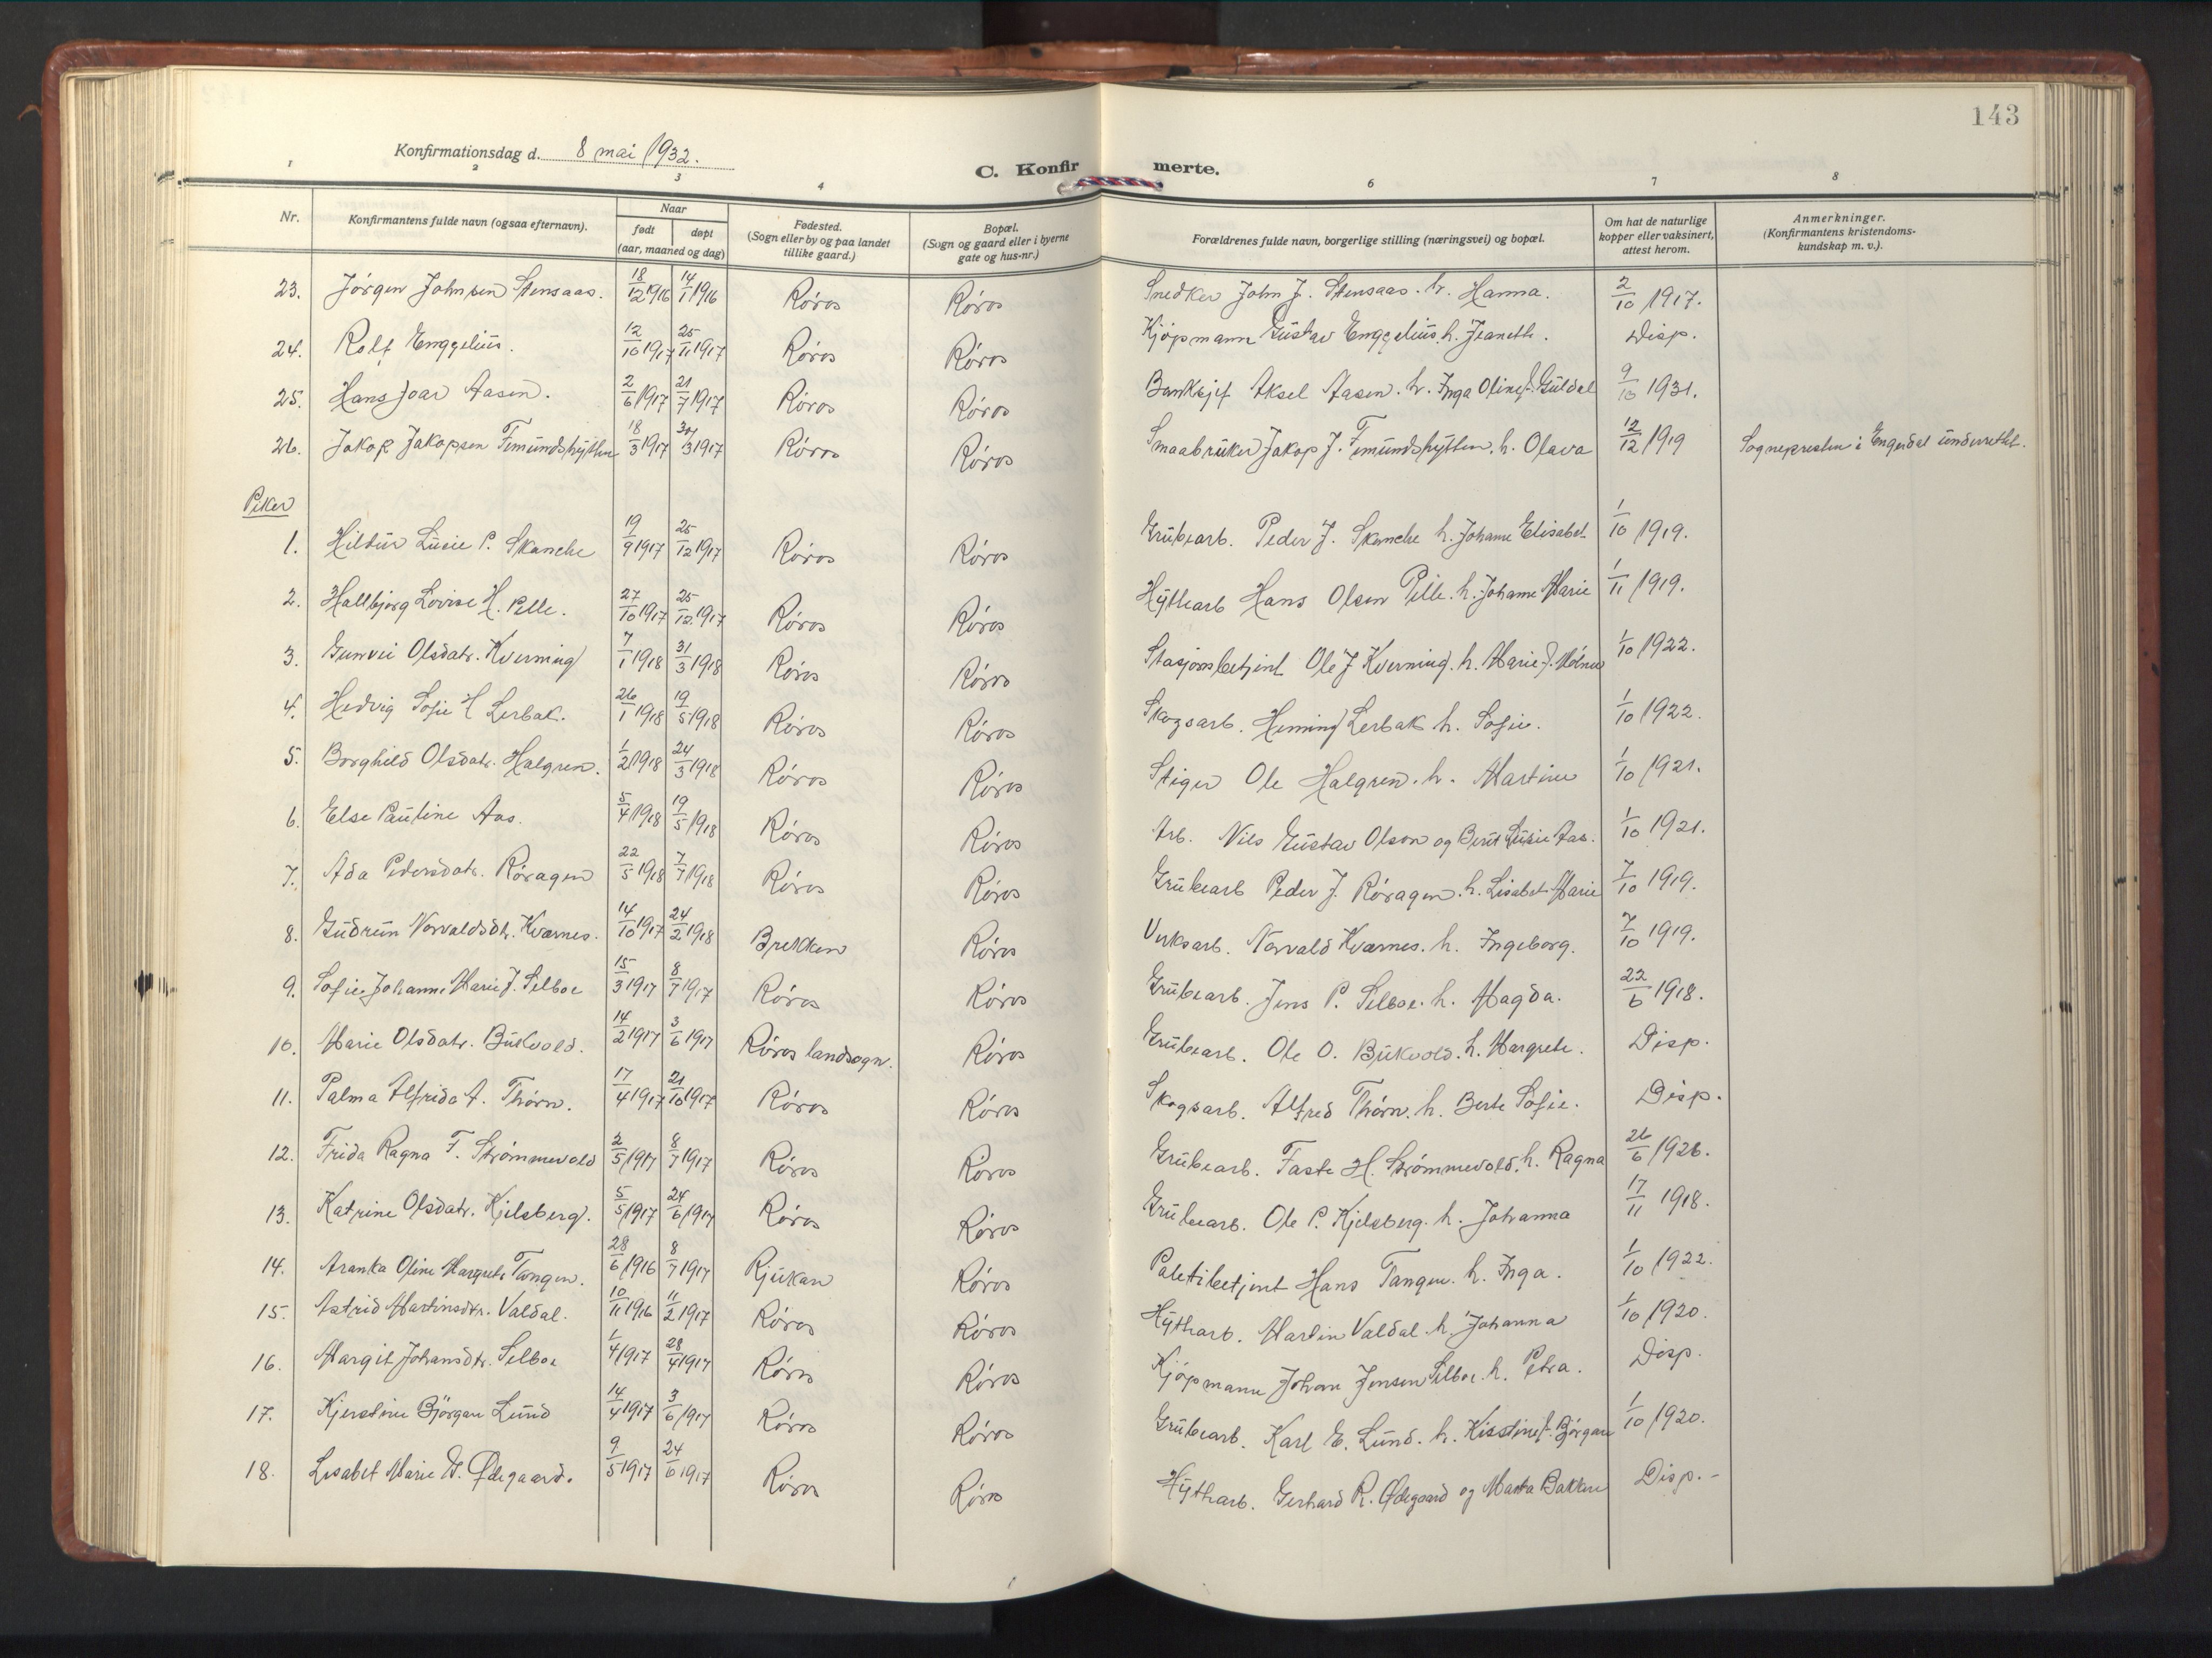 143
Konfirmationsdag d. 8 mai 1932.
C. Konfirmerte.
1 2 3 4 6 7 8
Nr. | Konfirmantens fulde navn (ogsaa efternavn). | Naar født døpt (aar, maaned og dag) | Fødested. (Sogn eller by og paa landet tillike gaard.) | Bopæl. (Sogn og gaard eller i byerne gate og hus-nr.) | Forældrenes fulde navn, borgerlige stilling (næringsvei) og bopæl. | Om hat de naturlige kopper eller vaksinert, attest herom. | Anmerkninger. (Konfirmantens kristendoms-kundskap m. v.).
23. Jørgen Johnsen Stensaas. 18/12 1916 14/1 1916 Røros Røros Snedker John J. Stensaas. h. Hanna. 2/10 1917.
24. Rolf Engzelius. 12/10 1917 25/11 1917 Røros Røros Kjøpmann Gustav Engzelius, h. Jeanette. Disp.
25. Hans Joar Aasen. 2/6 1917 21/7 1917 Røros Røros Banksjef Aksel Aasen. h. Inga Oline f. Guldal 9/10 1931.
26. Jakop Jakopsen Femundshytten 18/3 1917 30/3 1917 Røros Røros Smaabruker Jakop J. Femundshytten. h. Olava 12/12 1919 Sognepresten i Engerdal underrettet.
Piker
1. Hildur Lucie P. Skanche 19/9 1917 25/12 1917 Røros Røros Grubearb. Peder J. Skanche h. Johanne Elisabet 1/10 1919.
2. Hallbjørg Lovise H. Pelle. 27/10 1917 25/12 1917 Røros Røros Hyttearb Hans Olsen Pelle. h. Johanne Marie 1/11 1919.
3. Gunvei Olsdatr. Kverning 7/1 1918 31/3 1918 Røros Røros Stasjonsbetjent Ole J Kverning. h. Marie f. 1/10 1922.
4. Hedvig Sofie H Lerbak. 26/1 1918 19/5 1918 Røros Røros Skogsarb. Heming Lerbak h. Sofie. 1/10 1922.
5. Borghild Olsdatr. Halgren. 1/2 1918 24/3 1918 Røros Røros Stiger Ole Halgren. h. Martine 1/10 1921.
6. Else Pauline Aas. 5/4 1918 19/5 1918 Røros Røros Arb. Nils Gustav Olson og Berit Lucie Aas. 1/10 1921.
7. Ada Pedersdatr. Røragen 22/5 1918 7/7 1918 Røros Røros Grubearb Peder J. Røragen. h. Lisabet Marie 7/10 1919.
8. Gudrun Norvaldsdtr. Kværnes. 14/10 1917 24/2 1918 Brekken Røros Verksarb. Norvald Kværnes. h. Ingeborg. 7/10 1919.
9. Sofie Johanne Marie J. Selboe 15/3 1917 8/7 1917 Røros Røros Grubearb. Jens P. Selboe. h. Magda. 22/6 1918.
10. Marie Olsdatr. Bukvold. 14/2 1917 3/6 1917 Røros landsogn. Røros Grubearb. Ole O. Bukvold. h. Margrete. Disp.
11. Palma Alfrida A. Thørn. 17/4 1917 21/10 1917 Røros Røros Skogsarb. Alfred Thørn. h. Berte Sofie. Disp.
12. Frida Ragna F. Strømmevold 2/5 1917 8/7 1917 Røros Røros Grubearb. Faste H. Strømmevold. h. Ragna 26/6 1926.
13. Katrine Olsdatr. Kjelsberg. 5/5 1917 24/6 1917 Røros Røros Grubearb. Ole P. Kjelsberg. h. Johanna 17/11 1918.
14. Aranka Oline Margrete Tangen. 28/6 1916 8/7 1917 Rjukan Røros Politibetjent Hans Tangen. h. Inga. 1/10 1922.
15. Astrid Martinsdtr. Valdal. 10/11 1916 11/2 1917 Røros Røros Hyttarb. Martin Valdal. h. Johanna 1/10 1920.
16. Margit Johansdtr. Selboe 1/4 1917 28/4 1917 Røros Røros Kjøpmann Johan Jensen Selboe. h. Petra. Disp.
17. Kjerstine Bjørgan Lund 14/4 1917 3/6 1917 Røros Røros Grubearb. Karl E. Lund. h. Kisstine f. Bjørgan 1/10 1920.
18. Lisabet Marie G. Ødegaard. 9/5 1917 24/6 1917 Røros Røros Hyttarb. Gerhard R. Ødegaard og Marta Bakken Disp. -